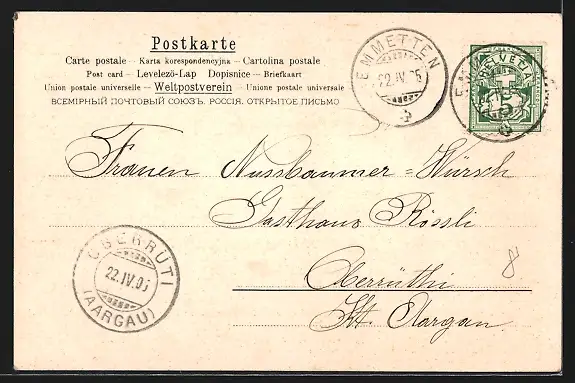 Postkarte
Carte postale – Karta korespondencyjna – Cartolina postale
Post card – Levelező-Lap Dopisnice – Briefkaart
Union postale universelle – Weltpostverein – Unione postale universale
ВСЕМІРНЫЙ ПОЧТОВЫЙ СОЮЗЪ. РОССІЯ. ОТКРЫТОЕ ПИСЬМО
EMMETTEN
22.IV.05
HELVETIA
5
Frauen Nussbaumer=Würsch
Gasthaus Rössli
Oberrüthi
Kt. Aargau
8
OBERRUTI
22.IV.05
(AARGAU)